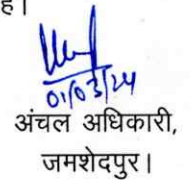 है।
01/03/24
अंचल अधिकारी,
जमशेदपुर।